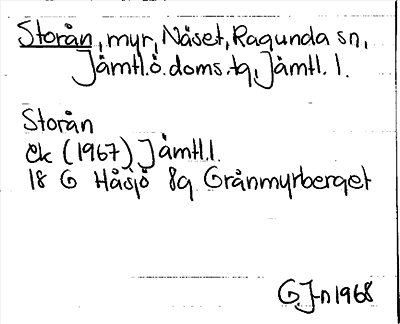 Storån, myr, Näset, Ragunda sn,
Jämtl.ö.doms.tg, Jämtl. l.
Storån
ek (1967) Jämtl.l.
18 G Håsjö 8g Grånmyrberget
G.J-n 1968